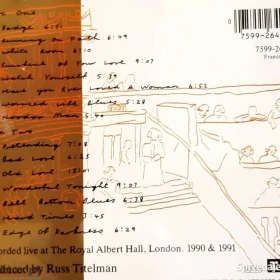 One
Badge 6:51
Running on Faith 6:49
White Room 6:10
Sunshine of Your Love 9:07
Watch Yourself 5:39
Have You Ever Loved A Woman 6:52
Worried Life Blues 5:28
Hoodoo Man 5:40
Two
Pretending 7:08
Bad Love 6:25
Old Love
Wonderful Tonight 9:07
Bell Bottom Blues 6:39
Hard Times 3:45
Edge of Darkness 6:29
orded live at The Royal Albert Hall, London. 1990 & 1991
duced by Russ Titelman
7599-264
7599-26
France